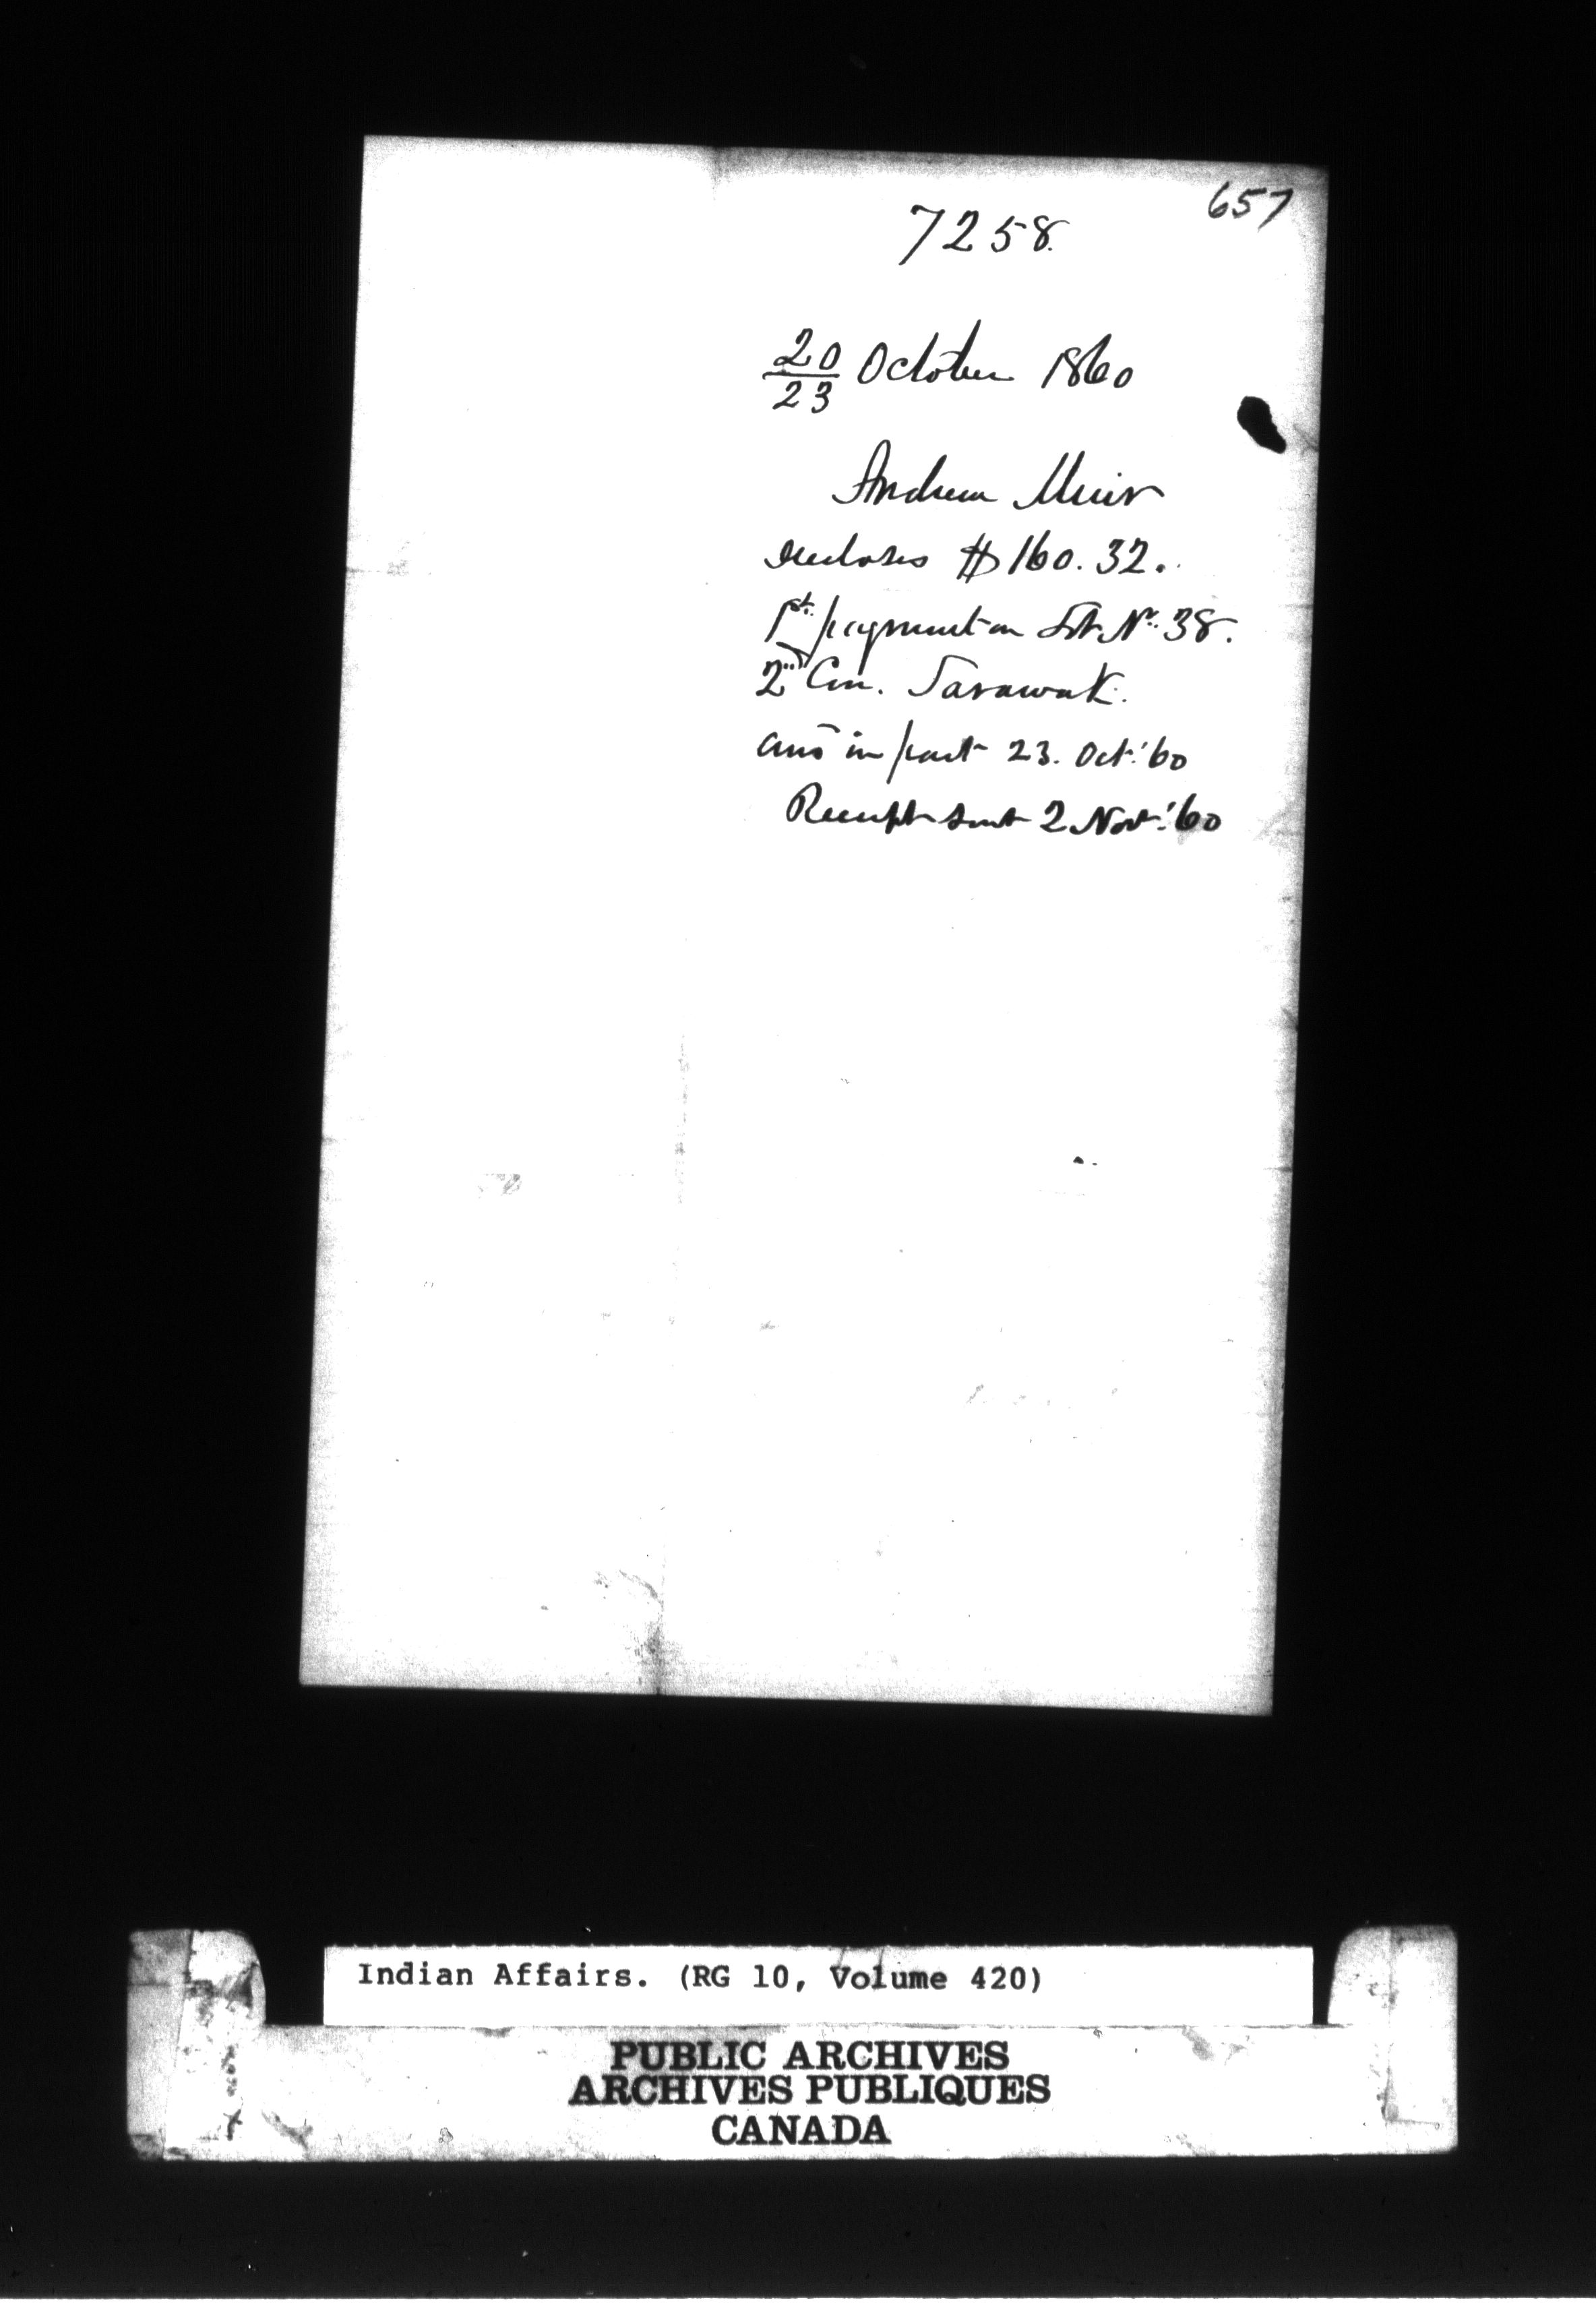 657
7258.
20/23 October 1860
Andrew Muir
encloses $160.32.
1st. payment on Lot No. 38.
2nd Con. Sarawak.
ansd in part 23. Oct. '60
Receipt sent 2 Nov. '60
Indian Affairs. (RG 10, Volume 420)
PUBLIC ARCHIVES
ARCHIVES PUBLIQUES
CANADA